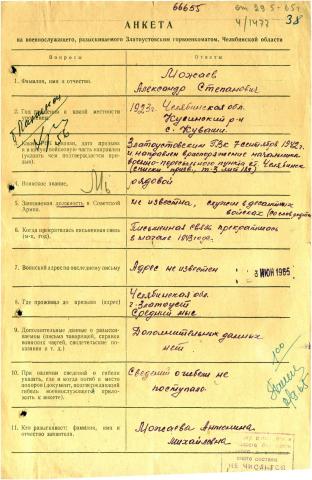 66655
от 29.5-65г
4/1477
38
АНКЕТА
на военнослужащего, разыскиваемого Златоустовским горвоенкоматом, Челябинской области
Вопросы
Ответы
1. Фамилия, имя и отчество.
Можаев
Александр Степанович
2. Год
и какой местности
1923г. Челябинская обл.
Кусинский р-н
с. Куваши.
дата призыва
и в какую войсковую часть направлен
(указать чем подтверждается призыв).
Златоустовским ГВК 7 сентября 1942г.
и направлен в распоряжение начальника
военно-пересыльного пункта г. Челябинск
4. Воинское звание.
рядовой
5. Занимаемая должность в Советской
Армии.
не известна, служил в десантных
войсках
6. Когда прекратилась письменная связь
(м-ц, год).
Письменная связь прекратилась
в начале 1943 года.
7. Воинский адрес по последнему письму
Адрес не известен
3 ИЮН 1965
8. Где проживал до призыва (адрес)
Челябинская обл.
г. Златоуст
Средний мыс
9. Дополнительные данные о разыскиваемом (письма товарищей, справка воинских частей, свидетельские показания и т. д.)
Дополнительных данных
нет.
10. При наличии сведений о гибели
указать, где и когда погиб и место
похорон (документ, подтверждающий
гибель военнослужащего приложить к анкете).
Сведений о гибели не
поступало.
11. Кто разыскивает: фамилия, имя и
отчество заявителя.
Можаева Анжелина
Михайловна
НЕ ЧИСЛИТСЯ